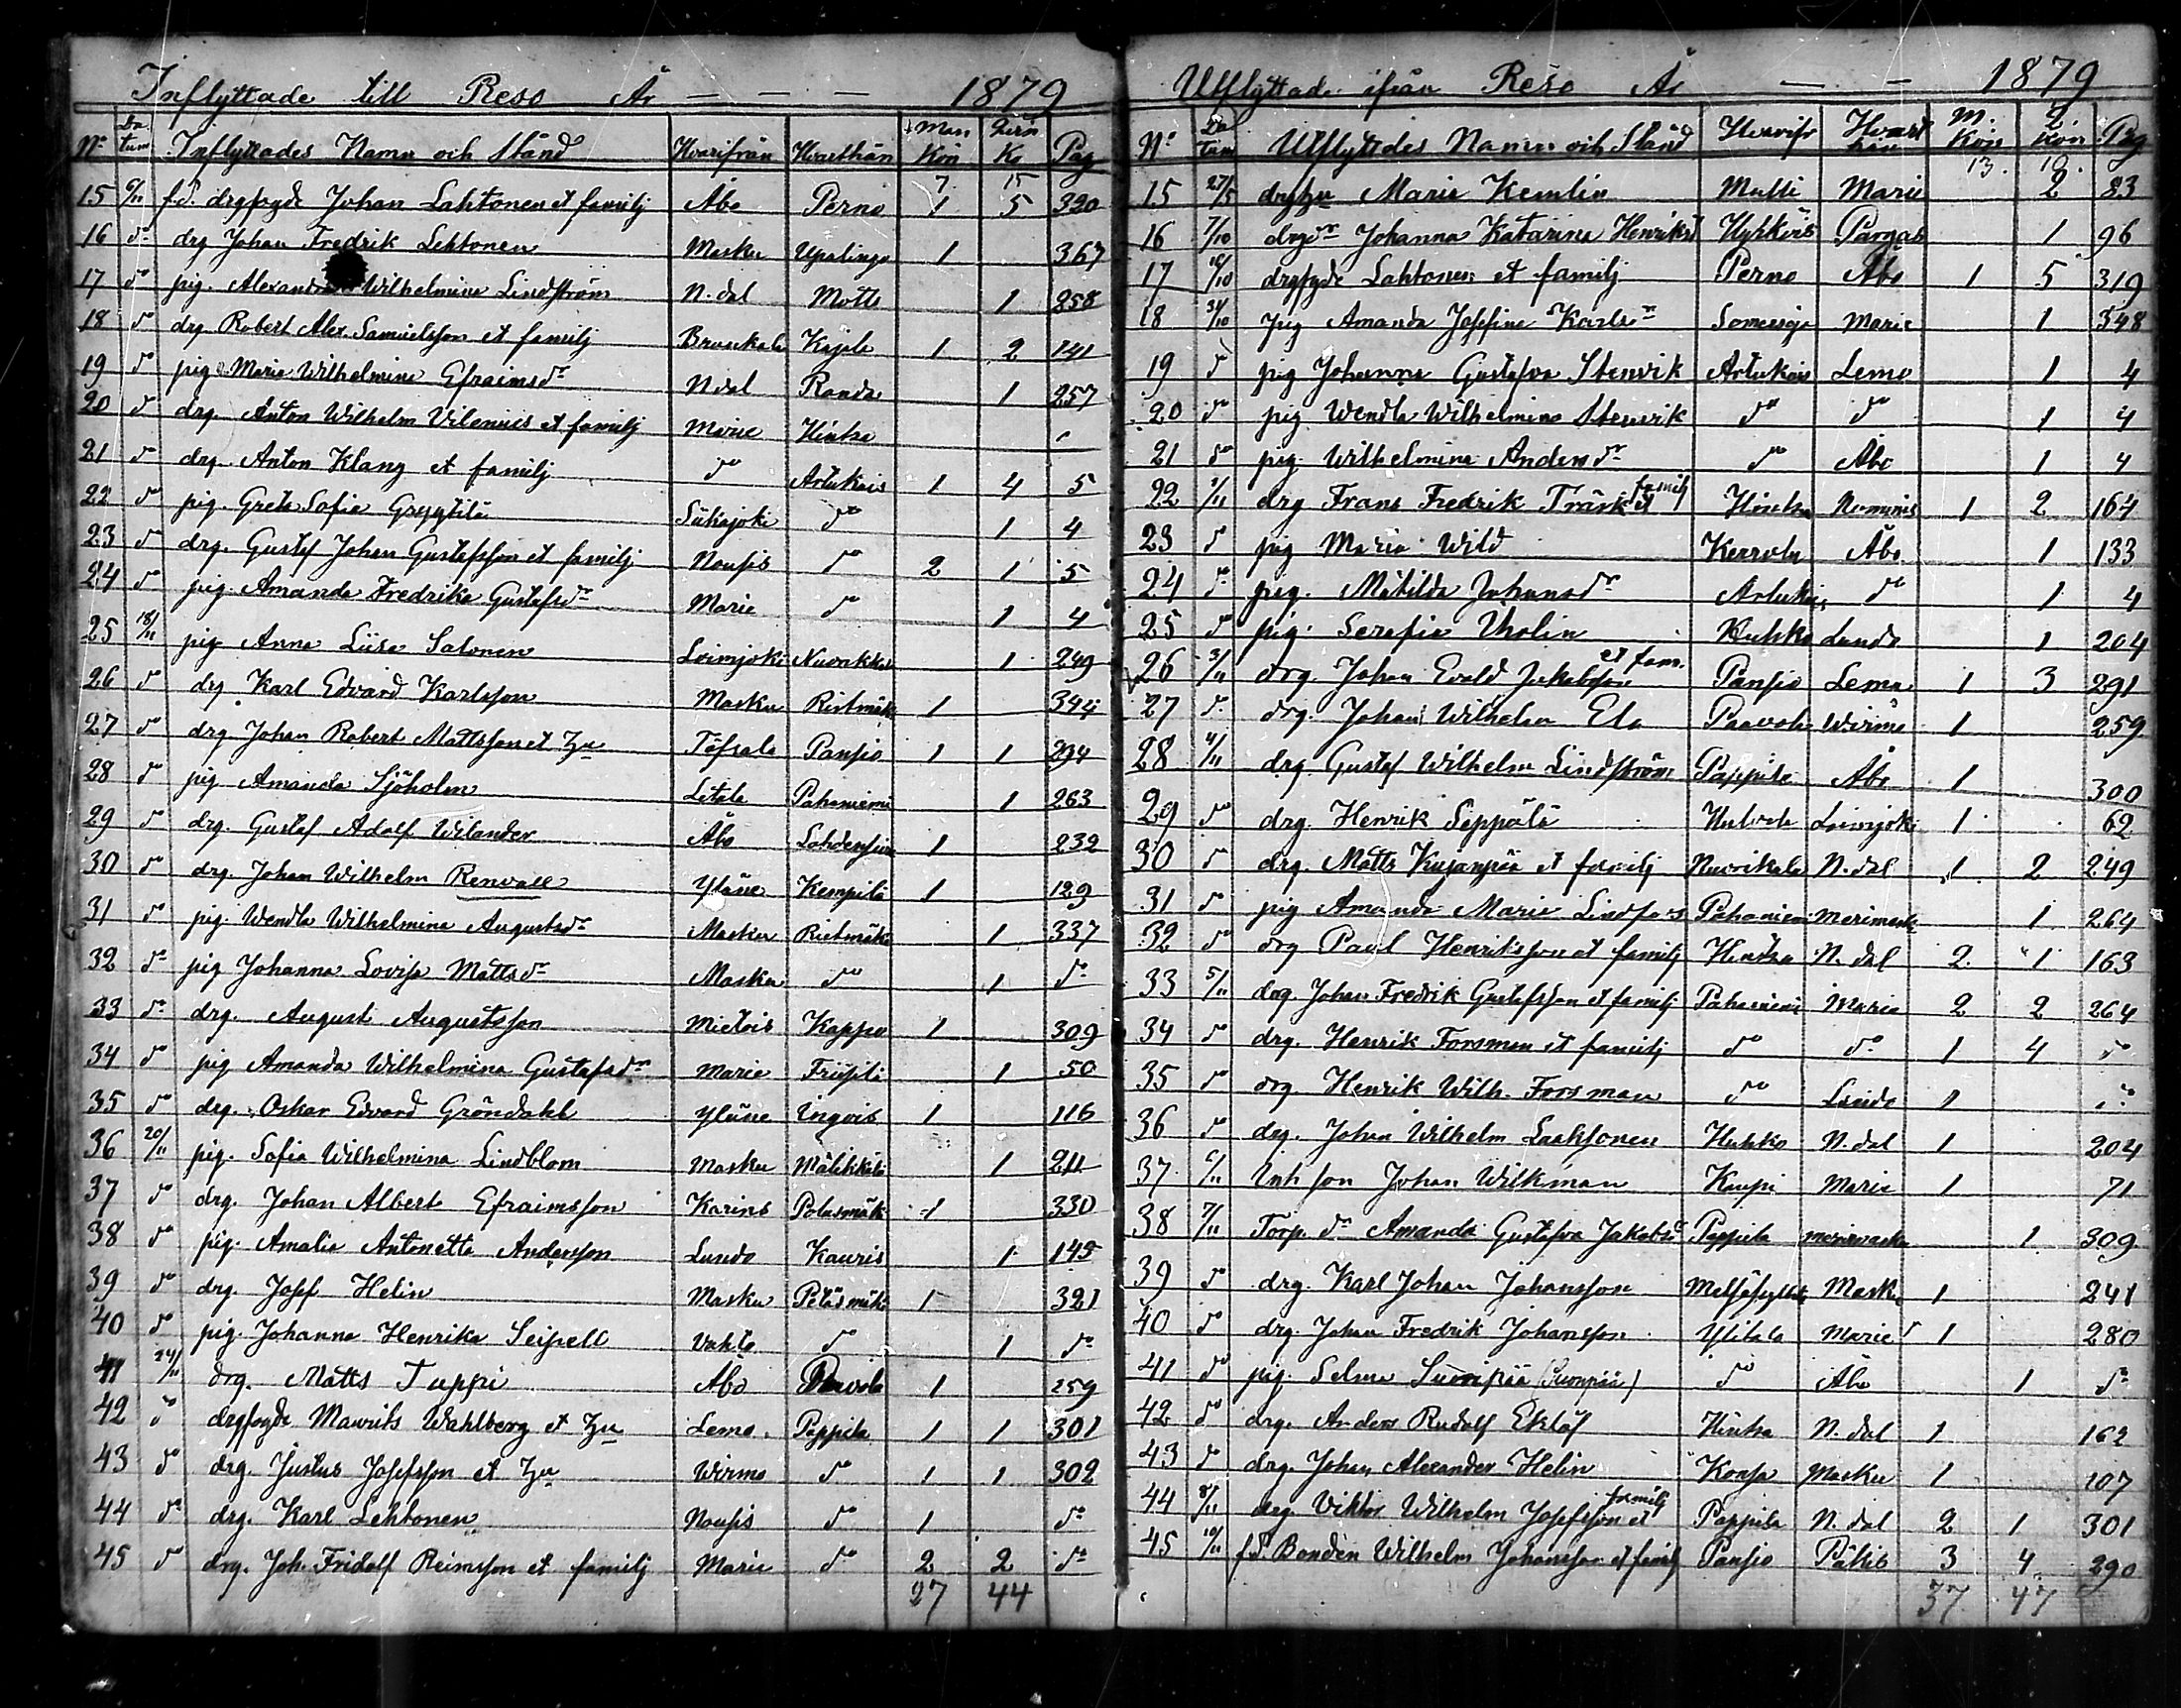 Inflyttade till Reso År - - - 1879
No Datum Inflyttades Namn och Stånd Hvarifrån Hvarthän Man Kön Qvin Kö Pag
7 15
15 6/11 f.d. drgfogde Johan Lahtonen et familj Åbo Perno 1 5 320
16 do drg Johan Fredrik Lehtonen Masku Upalinge 1 367
17 do pig. Alexandra Wilhelmina Lindström N.dal Motts 1 258
18 do drg. Robert Alex. Samuelsson et familj Brunkala Kajala 1 2 141
19 do pig. Maria Wilhelmina Efraimsdr N.dal Randa 1 257
20 do drg. Anton Wilhelm Vilenius et familj Marie Hintsa
21 do drg. Anton Klang et familj do Artukais 1 4 5
22 do pig. Greta Sofia Gryytilä Siikajoki do 1 4
23 do drg. Gustaf Johan Gustafsson et familj Nousis do 2 1 5
24 do pig. Amanda Fredrika Gustafsdr Marie do 1 4
25 18/11 pig Anna Liisa Salonen Loimjoki 1 249
26 do drg Karl Edvard Karlsson Masku Ristmäki 1 344
27 do drg Johan Robert Mattsson et hu Töfsala Pansio 1 1 294
28 do pig Amanda Sjöholm Letala Pahaniemi 1 263
29 do drg. Gustaf Adolf Wilander Åbo 1 232
30 do drg. Johan Wilhelm Renvall Yläne Kempilä 1 129
31 do pig. Wendla Wilhelmina Augustsdr Masku Ristmäki 1 337
32 do pig Johanna Lovisa Mattsdr Masku do 1 do
33 do drg. August Augustsson Mietois Kappo 1 309
34 do pig Amanda Wilhelmina Gustafsdr Marie Friisilä 1 50
35 do drg. Oskar Edvard Gröndahl Yläne Ingois 1 116
36 20/11 pig. Sofia Wilhelmina Lindblom Masku Mälikkälä 1 211
37 do drg. Johan Albert Efraimsson Karins Polusmäki 1 330
38 do pig. Amalia Antonetta Andersson Lundo Kauris 1 145
39 do drg. Josef Helin Masku Petäsmäki 1 321
40 do pig. Johanna Henrika Seipell Vahto do 1 do
41 24/11 drg. Matts Tuppi Åbo Paavola 1 259
42 do drgfogde Maurits Wahlberg et hu Lemo Pappila 1 1 301
43 do drg. Justus Josefsson et hu Wirmo do 1 1 302
44 do drg. Karl Lehtonen Nousis do 1 do
45 do drg. Joh. Fridolf Reimsson et familj Marie do 2 2 do
27 44
Utflyttade ifrån Reso År - - 1879
No Datum Utflyttades Namn och Stånd Hvarifr Hvarthän M. Kön Q. Kön Pag
13. 10.
15 27/5 drghu Maria Kemlin Mulli Marie 2 83
16 7/10 drgdr Johanna Katarina Henriksd Hyrköis Pargas 1 96
17 16/10 drgfogde Lahtonen et familj Perno Åbo 1 5 319
18 31/10 pig Amanda Josefina Karlsdr Somersoja Marie 1 348
19 do pig Johanna Gustafva Stenvik Artukais Lemo 1 4
20 do pig. Wendla Wilhelmina Stenvik do do 1 4
21 do pig. Wilhelmina Andersdr do Åbo 1 4
22 1/11 drg Frans Fredrik Träsk et familj Hintsa Nummis 1 2 164
23 do pig Maria Wild Kerrola Åbo 1 133
24 do pig. Matilda Johansdr Artukais do 1 4
25 do pig. Serafia Tholin Huhko Lundo 1 204
26 3/11 drg. Johan Evald Jakobsson et fam. Pansio Lemo 1 3 291
27 do drg. Johan Wilhelm Elo Paavola Wirmo 1 259
28 4/11 drg. Gustaf Wilhelm Lindström Pappila Åbo 1 300
29 do drg. Henrik Seppälä Loimjoki 1 62
30 do drg. Matts Kujanpää et familj Nuorikkala N.dal 1 2 249
31 do pig Amanda Maria Lindfors Pahaniemi Merimasku 1 264
32 do drg Paul Henriksson et familj Hintsa N.dal 2 1 163
33 5/11 drg. Johan Fredrik Gustafsson et familj Pahaniemi Marie 2 2 264
34 do drg. Henrik Forsman et familj do do 1 4 do
35 do drg. Henrik Wilh. Forsman do Lundo 1 do
36 do drg. Johan Wilhelm Laaksonen Huhko N.dal 1 204
37 6/11 Inh son Johan Wilkman Kaupi Marie 1 71
38 7/11 Torp.dr Amanda Gustafva Jakobsd Pappila Merimasku 1 309
39 do drg. Karl Johan Johansson Masku 1 241
40 do drg. Johan Fredrik Johansson Ylitala Marie 1 280
41 do pig. Selma Suoripää (Suonpää) do Åbo 1 do
42 do drg. Anders Rudolf Eklöf Hintsa N.dal 1 162
43 do drg. Johan Alexander Helin Konsa Masku 1 107
44 8/11 drg. Viktor Wilhelm Josefsson et familj Pappila N.dal 2 1 301
45 10/11 fd Bonden Wilhelm Johansson et familj Pansio Päkis 3 4 290
37 47